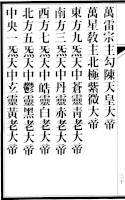 萬雷宗主勾陳天皇大帝
萬星教主北極紫微大帝
東方九炁天中蒼靈青老大帝
南方三炁天中丹靈赤老大帝
西方七炁天中皓靈白老大帝
北方五炁天中鬱靈黑老大帝
中央一炁天中玄靈黃老大帝